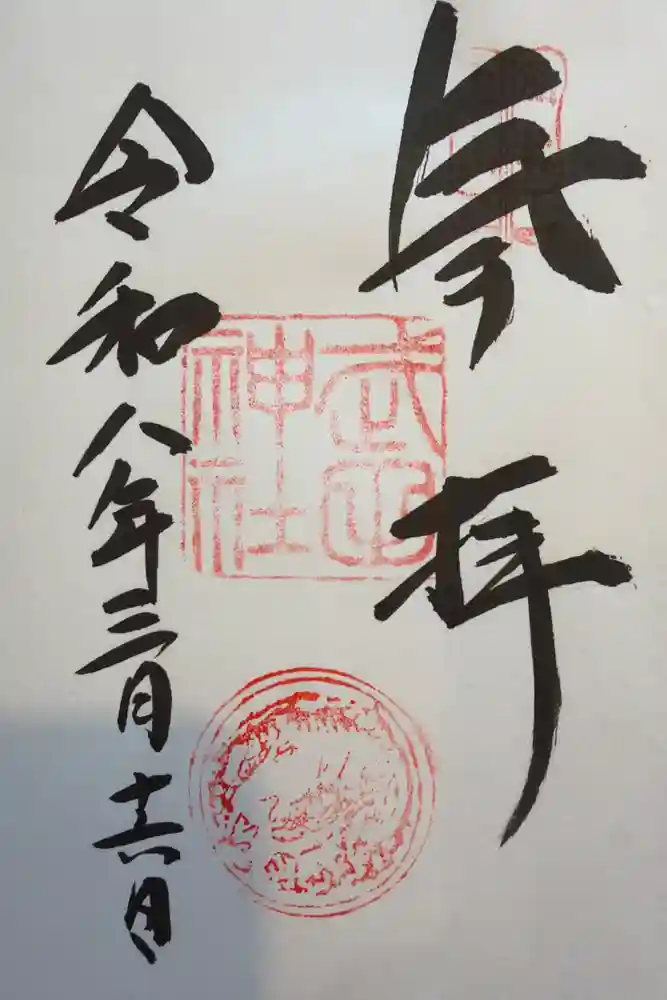 参拝
武田
神社
令和八年三月十六日